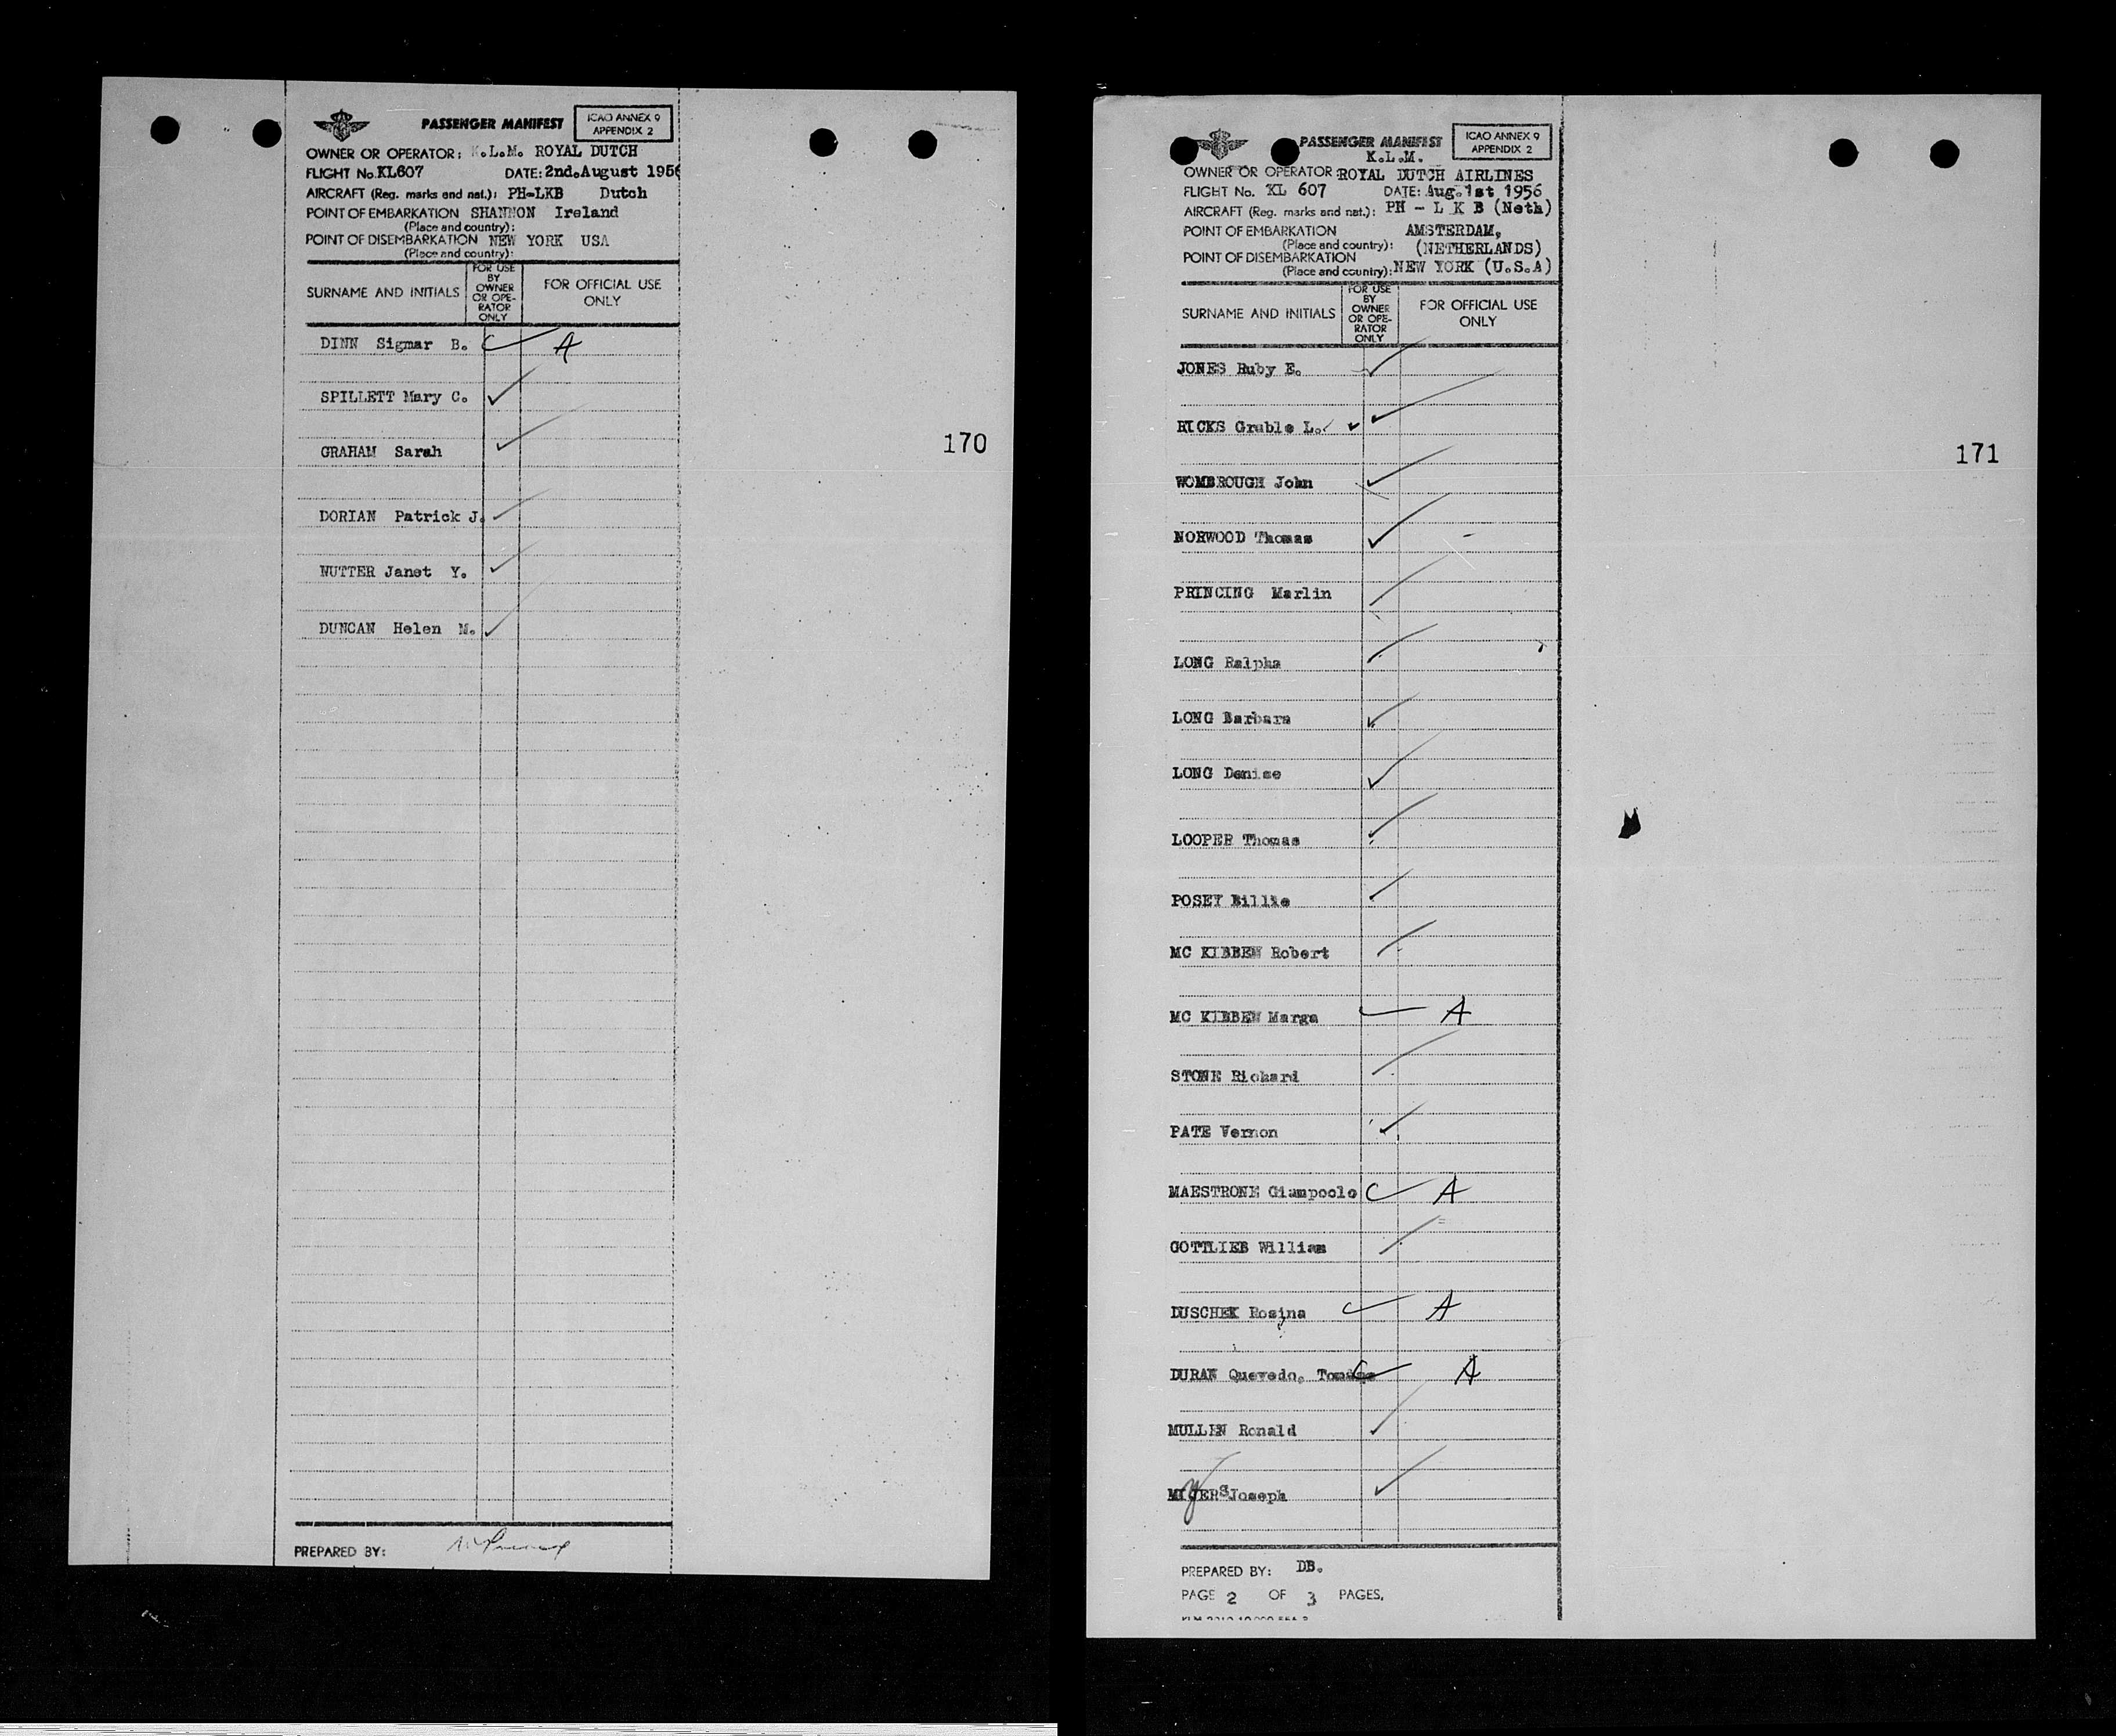 PASSENGER MANIFEST
ICAO ANNEX 9
APPENDIX 2
OWNER OR OPERATOR: K.L.M. ROYAL DUTCH
FLIGHT No. KL607 DATE: 2nd.August 1956
AIRCRAFT (Reg. marks and nat.): PH-LKB Dutch
POINT OF EMBARKATION SHANNON Ireland
(Place and country):
POINT OF DISEMBARKATION NEW YORK USA
(Place and country):
SURNAME AND INITIALS
FOR USE
BY
OWNER
OR OPE-
RATOR
ONLY
FOR OFFICIAL USE
ONLY
DINN Sigmar B. A
SPILLETT Mary C.
GRAHAM Sarah
DORIAN Patrick J.
NUTTER Janet Y.
DUNCAN Helen M.
PREPARED BY:
170
PASSENGER MANIFEST
ICAO ANNEX 9
APPENDIX 2
K.L.M.
OWNER OR OPERATOR: ROYAL DUTCH AIRLINES
FLIGHT No. KL 607 DATE: Aug.1st 1956
AIRCRAFT (Reg. marks and nat.): PH - L K B (Neth)
POINT OF EMBARKATION AMSTERDAM,
(Place and country): (NETHERLANDS)
POINT OF DISEMBARKATION
(Place and country): NEW YORK (U.S.A)
SURNAME AND INITIALS
FOR USE
BY
OWNER
OR OPE-
RATOR
ONLY
FOR OFFICIAL USE
ONLY
JONES Ruby E.
HICKS Gruble L.
WOMBROUGH John
NORWOOD Thomas
PRINCING Marlin
LONG Ralpha
LONG Barbara
LONG Denise
LOOPER Thomas
POSEY Billie
MC KIBBEN Robert
MC KIBBEN Marga A
STONE Richard
PATE Vernon
MAESTRONE Giampoolo A
GOTTLIEB William
DUSCHEK Rosina A
DURAN Quevedo, A
MULLIN Ronald
Joseph
PREPARED BY: DB.
PAGE 2 OF 3 PAGES.
171